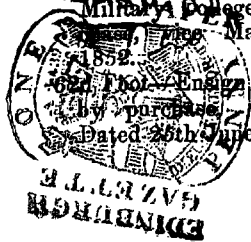 Military College
vice Ma
1852.
62d Foot—Ensign
by purchase
Dated 25th June
ONE PENNY
EDINBURGH
GAZETTE